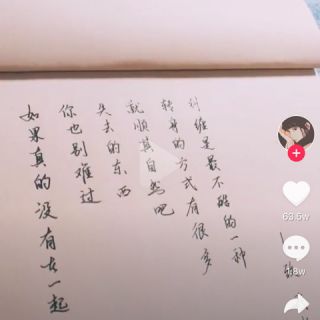 如果真的没有在一起
你也别难过
失去的东西
就顺其自然吧
转身的方式有很多
纠缠是最不酷的一种
63.5w